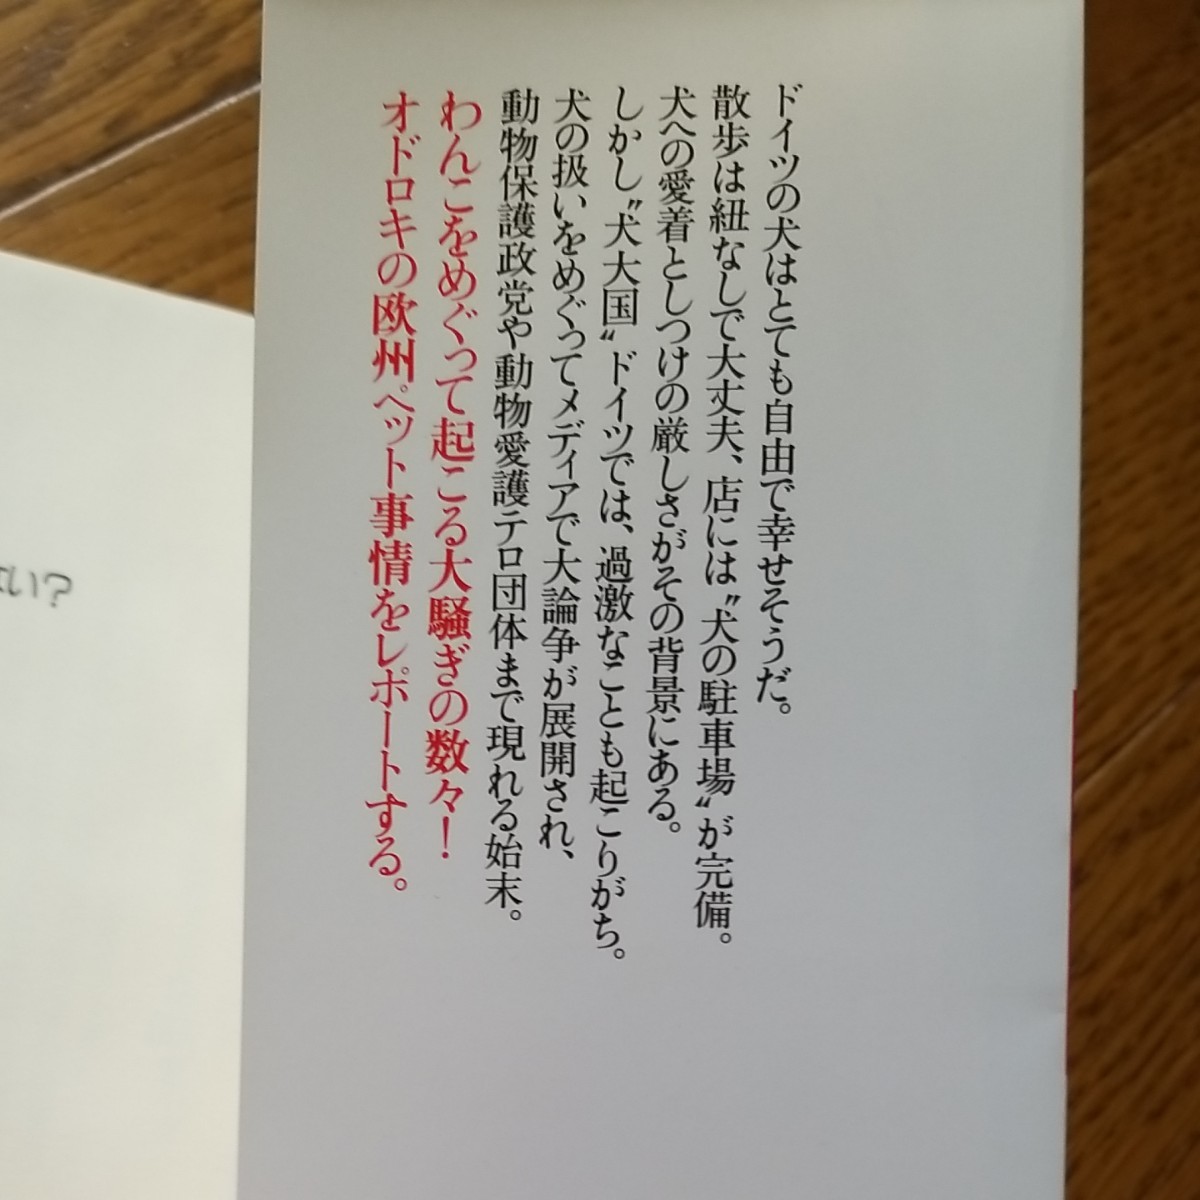 ドイツの犬はとても自由で幸せそうだ。
散歩は紐なしで大丈夫、店には〝犬の駐車場〟が完備。
犬への愛着としつけの厳しさがその背景にある。
しかし〝犬大国〟ドイツでは、過激なことも起こりがち。
犬の扱いをめぐってメディアで大論争が展開され、
動物保護政党や動物愛護テロ団体まで現れる始末。
わんこをめぐって起こる大騒ぎの数々!
オドロキの欧州ペット事情をレポートする。
い?